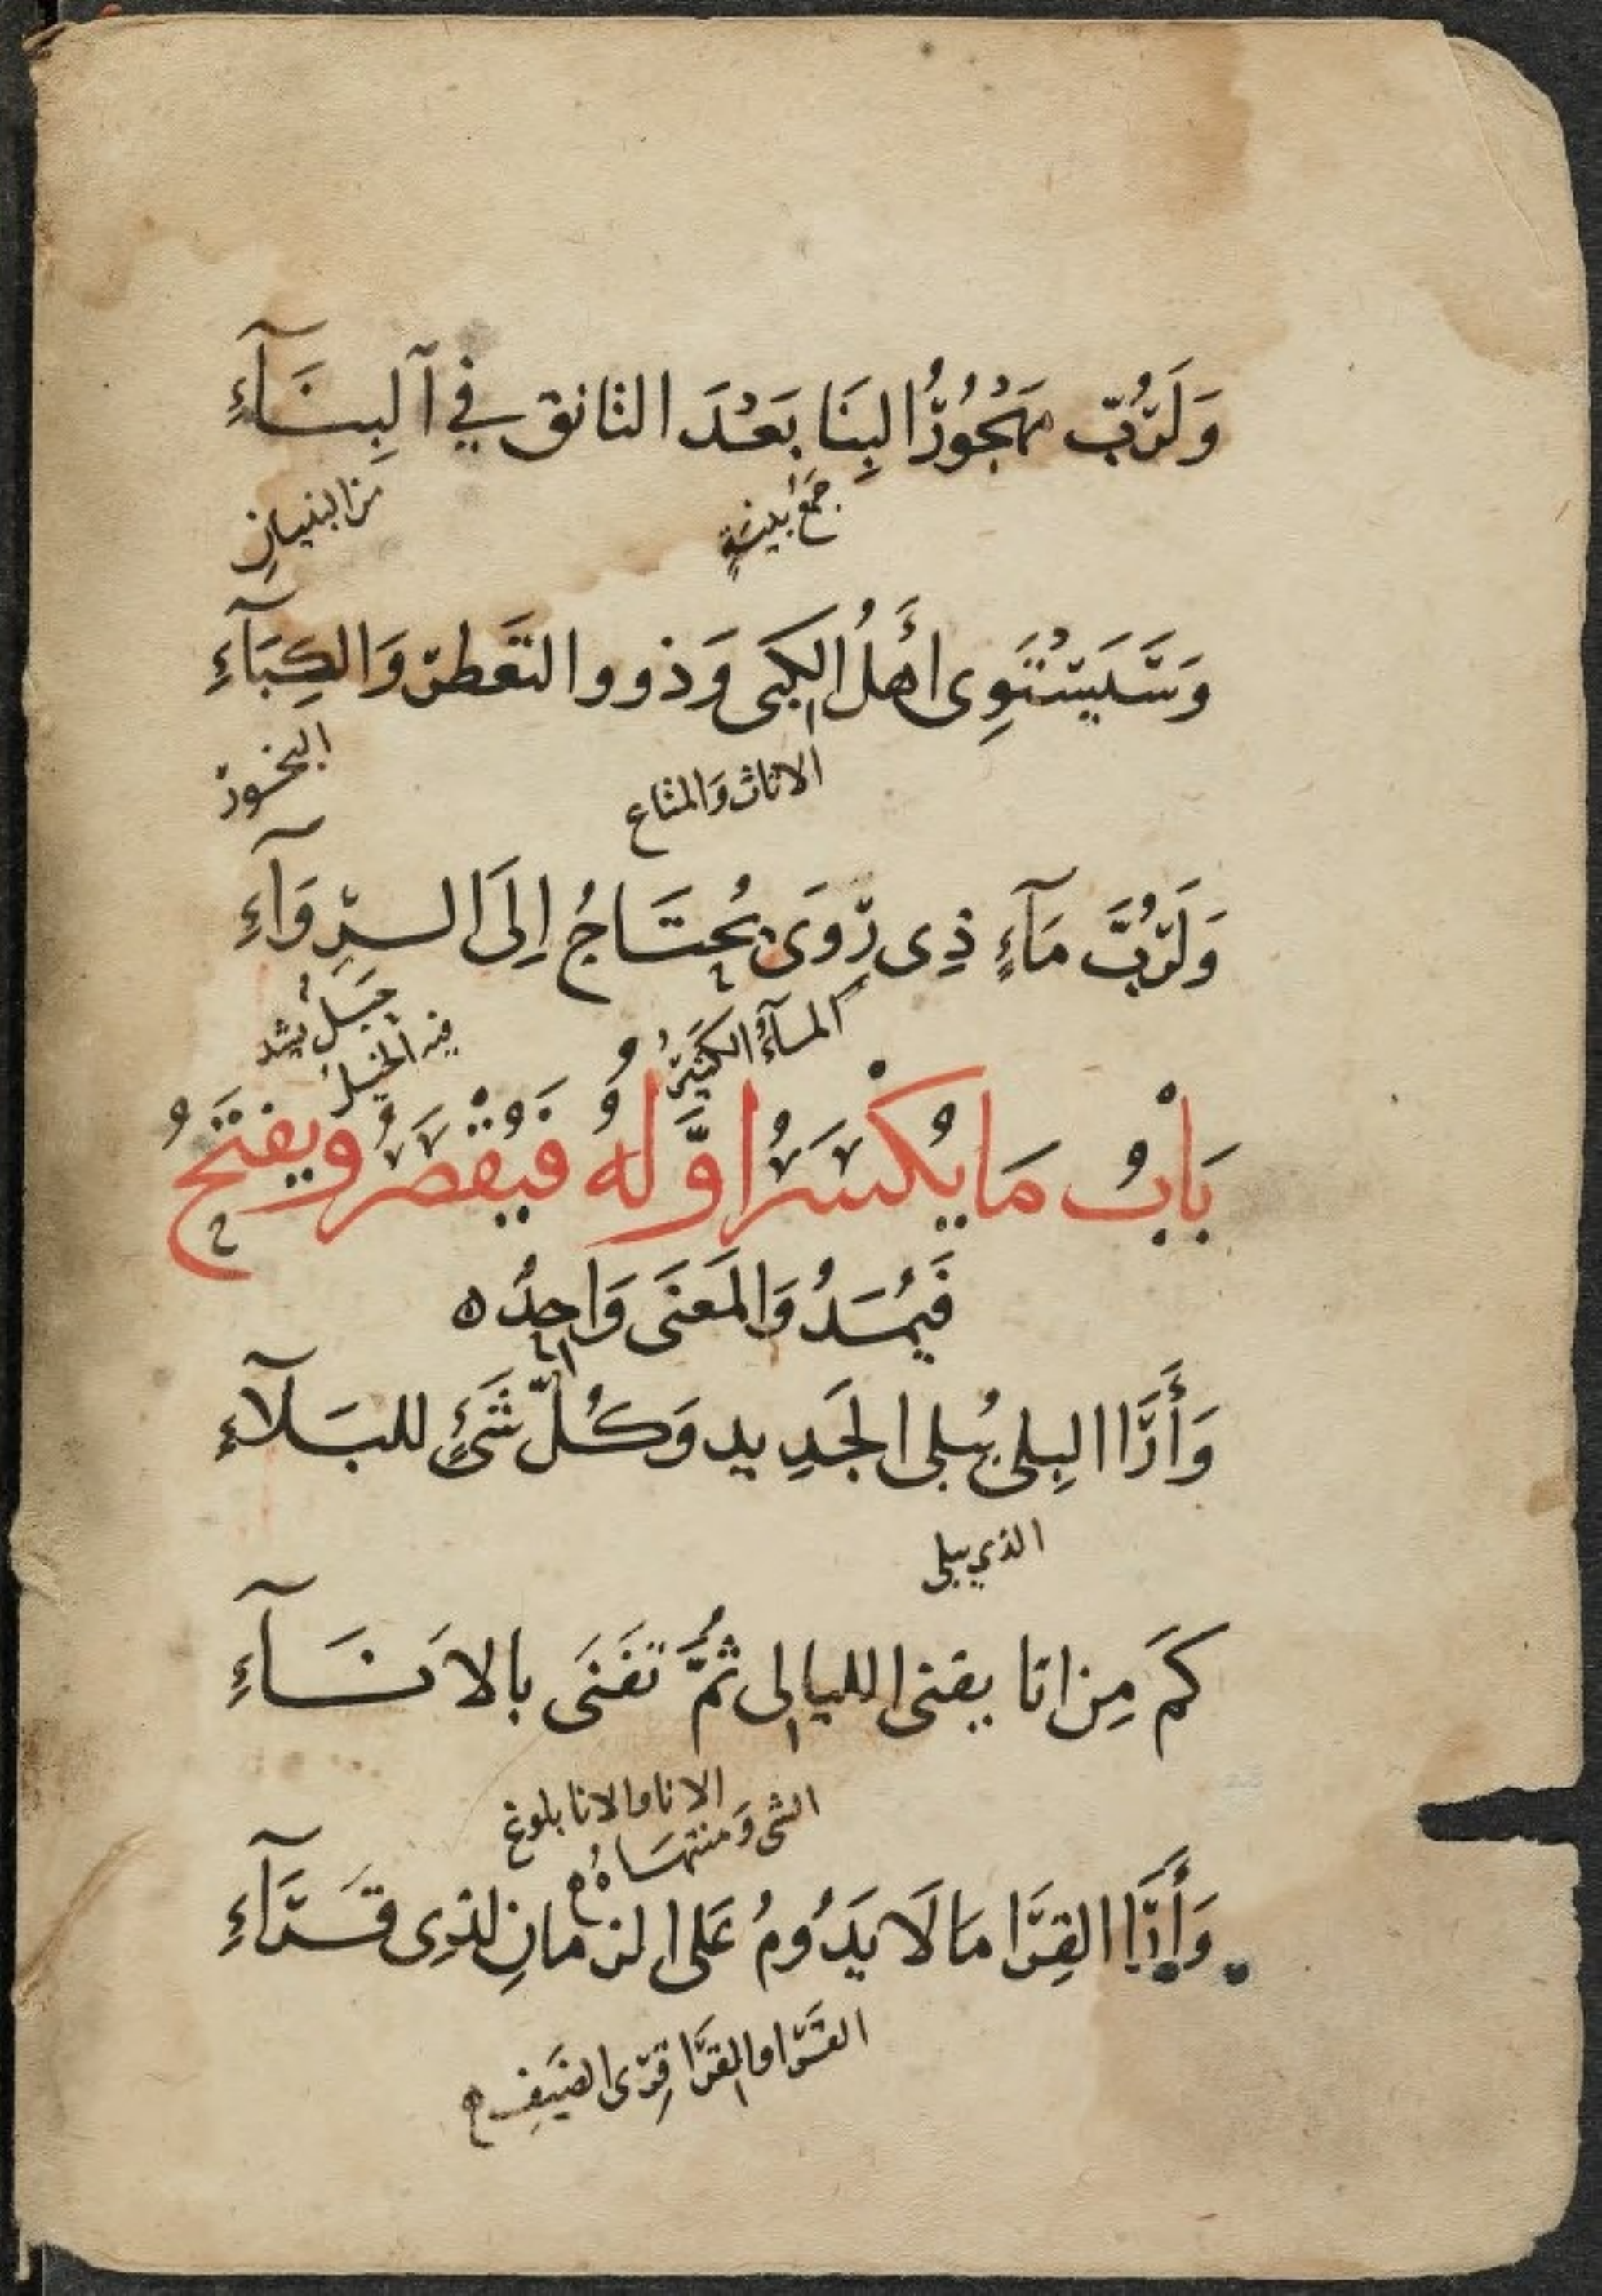 وَلَرُبّ مَهْجُورُ البِنَا بَعْدَ التانق في آلبِنَآءِ
جَمْعُ بِنْيَةٍ
مِنَ البنيانِ
وَسَيَسْتَوِى أَهلُ الكِبَى وَذوو التعَطرّ وَالكِبَآءِ
الاثاث وَالمتاع
البخور
وَلَرُبَّ مَآءٍ ذِى رِوَى يُحتَاجُ اِلَى السرِّوَآءِ
المآءُ الكَثِيرُ
حَبَلُ يشد
فيه الحِمْلُ
بَابُ مَا يُكْسَرُ اوَّلهُ فَيُقْصَرُ ويفتَحُ
فَيُمَدُ وَالمَعنَى وَاحِدُ ه
وَأَرَا البِلى يُبلى الجَدِيد وَكُلّ شَيْءٍ للبَلآءِ
الذي يبلى
كَمَ مِن انا يفنى الليالى ثُمَّ تَفنَى بالاَنَآءِ
الانا والانا بلوغ
الشى وَمنتهَاهُ
وَأَرَا القِرَا مَا لَا يَدُومُ عَلى الزمانِ لذِى قَرَآءِ
القَرا والقرَا قِرَى الضَيفِ